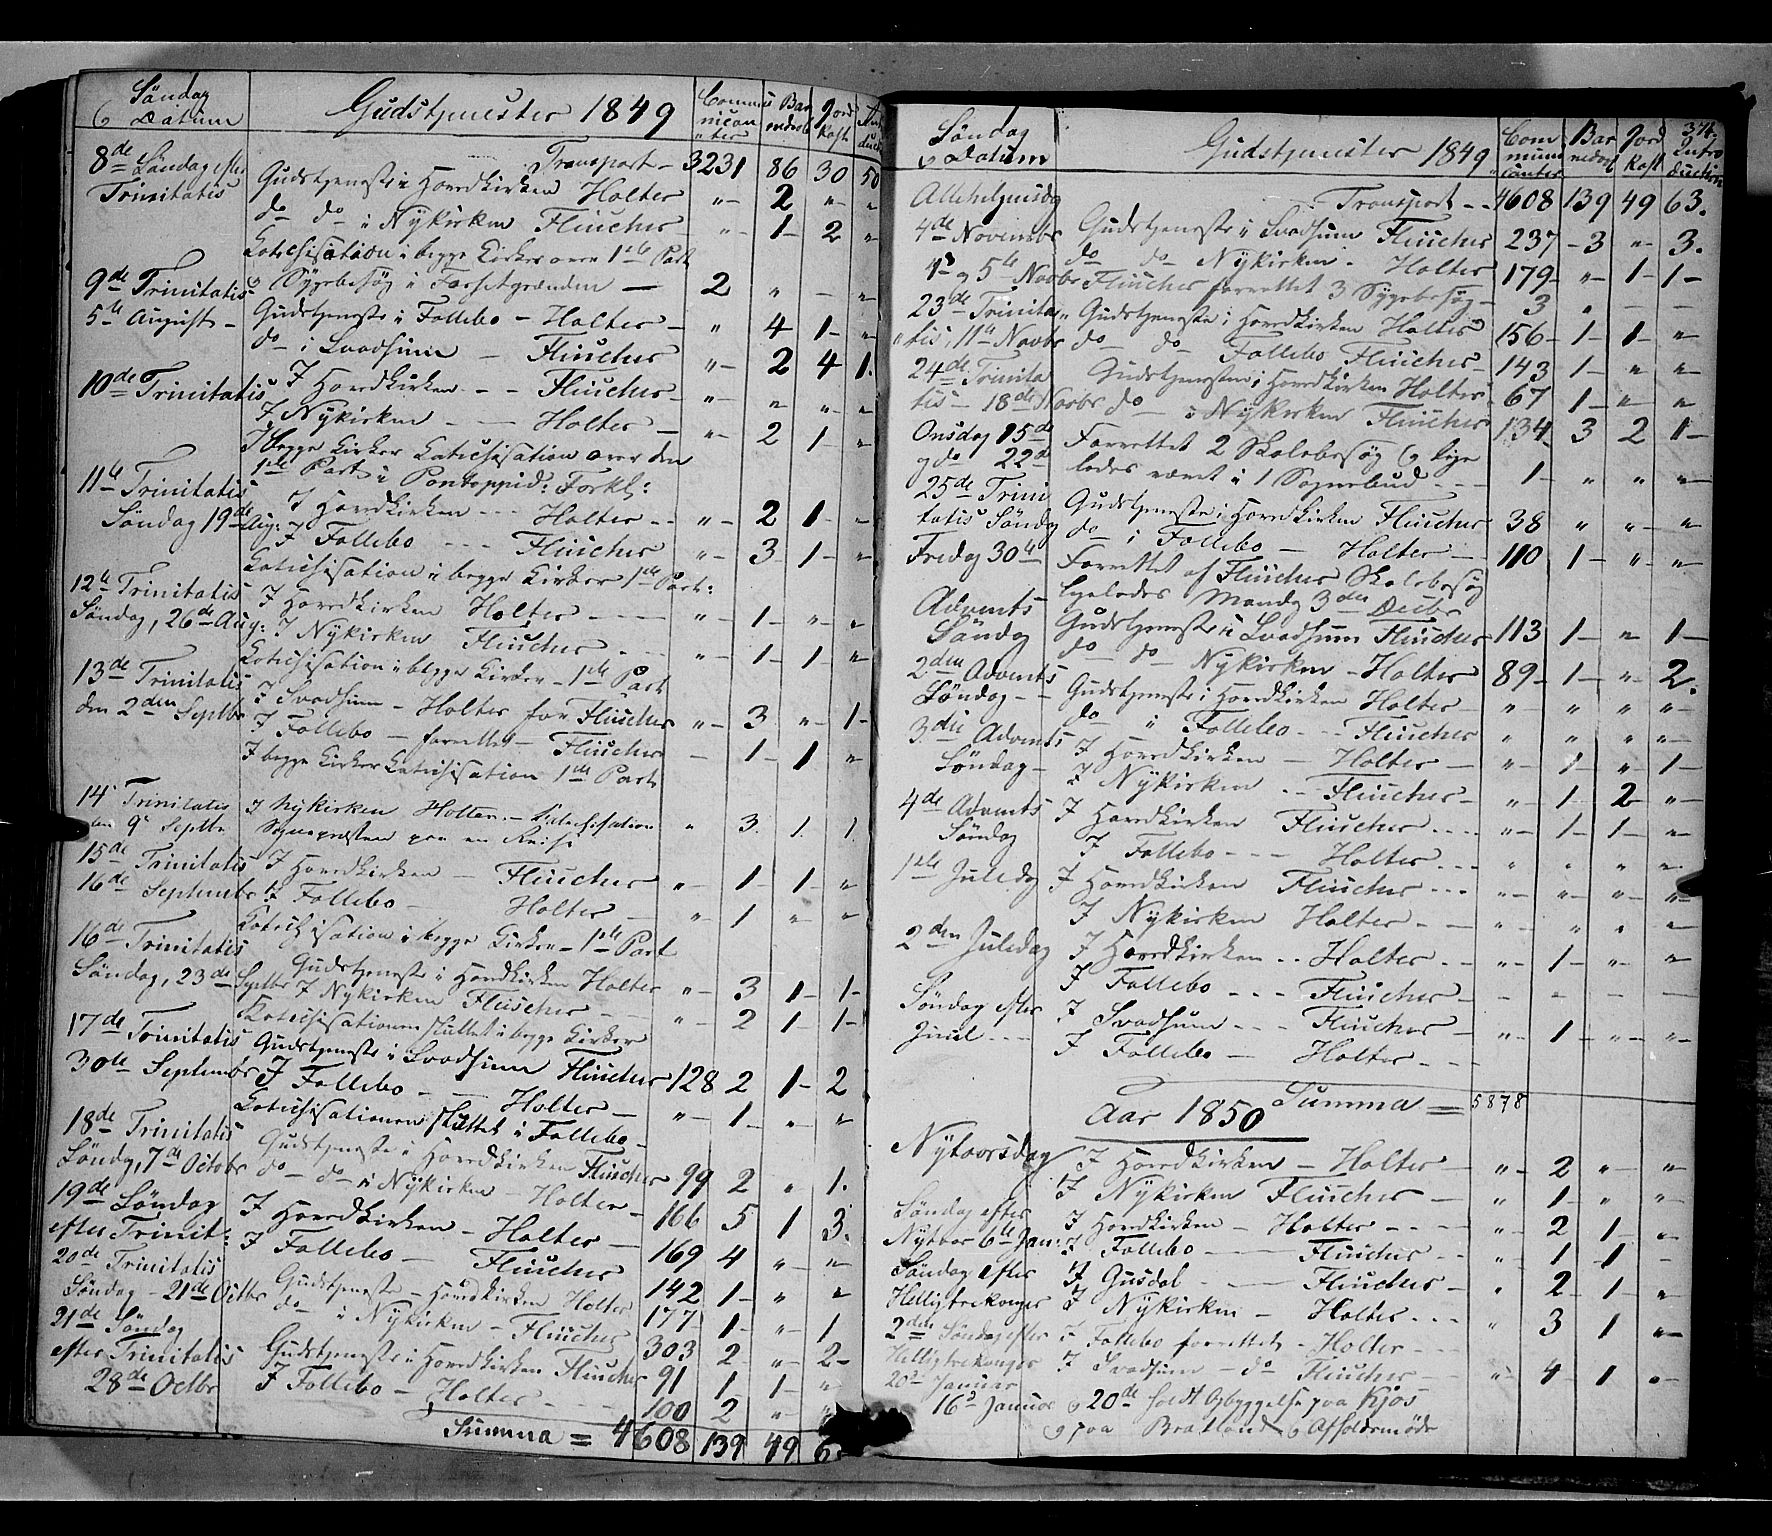 Søndag
og Datum
Gudstjenester 1849
Communicanter
Barnedaab
Jordkast
8de Søndag efter
Transport - 3231 86 30 50
Trinitatis
Gudstjeneste i Hovedkirken Holter " - 2 " "
do do i Nykirken Fleischer " - 1 - 2 "
Katechisation i begge Kirker over 1ste Part
9de Trinitatis
og Sygebesøg i Forsetgrænden — 2 " - "
5te August -
Gudstjeneste i Follebo - Holter - " 4 1 - "
do i Svadsum - Fleischer " - 2 4 1.
10de Trinitatis
I Hovedkirken - - Fleischer - " - " " - "
I Nykirken - - Holter - " - 2 1 - "
I begge Kirker Katechisation over den
1ste Part i Pontoppid: Forkl:
11te Trinitatis
Søndag 19de Aug:
I Hovedkirken - - - Holter - - " - 2 1 - "
I Follebo - - - Fleischer " - 3 1 - "
Katechisation i begge Kirker 1ste Part:
12te Trinitatis
I Hovedkirken Holter - - - " - 1 - " - "
Søndag, 26de Aug:
I Nykirken Fleischer - - " - 1 - 1 - "
Katechisation i begge Kirker - 1ste Part
13de Trinitatis
den 2den Septbr
I Svadsum - Holter for Fleischer " - 3 " - 1 -
I Follebo - forrettet - Fleischer - 1 - 1 "
I begge Kirker Katechisation 1ste Part
14' Trinitatis
den 9' Septbr
I Nykirken Holter - Katechisation " 3. 1. 1
Sognepræsten paa en Reise
15de Trinitatis
I Hovedkirken - Fleischer " - 1 - 1 - "
16de Septembr
I Follebo - Holter - " 1 - " - "
Katechisation i begge Kirker - 1ste Part
16de Trinitatis
Søndag, 23de Septbr
Gudstjeneste i Hovedkirken Holter " - 3 1 - 1 -
I Nykirken Fleischer - - " - 2 1 1 -
Katechisationen sluttet i begge Kirker
17de Trinitatis
30te Septembr
Gudstjeneste i Svadsum Fleischer 128 2 1 - 2
I Follebo - - Holter - " - 1 - " - "
Katechisationen sluttet i Follebo -
18de Trinitatis
Søndag, 7de Octobr
Gudstjeneste i Hovedkirken Fleischer 99 2 " 1.
do - do i Nykirken - Holter - 166 5 1 3.
19de Søndag
efter Trinit:
I Hovedkirken - Holter - 169 4 " - " -
I Follebo - Fleischer 142 1 - " "
20de Trinitatis
Søndag - 21de Octbr
Gudstjeneste - Hovedkirken Holter 177 1 - " - 1
do i Nykirken - Fleischer 303 2 " - 2 -
21de Søndag
efter Trinitatis
28de Octbr
Gudstjeneste i Hovedkirken Fleischer 91 1 1 - "
I Follebo - Holter - - - 100 2 " -
Summa = 4608 139 49 6
374.
Søndag
og Datum
Gudstjenester 1849
Communicanter
Barnedaab
Jordkast
Introduction
Allehelgensdag
Transport - - 4608 139 49 63.
4de Novembr
Gudstjeneste i Svadsum Fleischer 237 - 3 " - 3.
do do Nykirken - Holter 179 - " - 1 - 1 -
og 5te Novbr Fleischer forrettet 3 Sygebesøg - 3 " - -
23de Trinita
Gudstjeneste i Hovedkirken Holter 156 - 1 - 1 - "
tis, 11te Novbr
do do Follebo Fleischer - 143 1 - " "
24de Trinita
Gudstjenesten i Hovedkirken Holter - 67 1 - " - "
tis - 18de Novbr
do - i Nykirken Fleischer 134 3 2 1 -
Onsdag 15de
Forrettet 2 Skolebesøg og lige
og do 22de
ledes været i 1 Sognebud - - - 1 - " " " -
25de Trini
tatis Søndag
Gudstjeneste i Hovedkirken Fleischer 38 " " - "
do - i Follebo - Holter - 110 1 - " - "
Fredag 30te
Forrettet af Fleischer Skolebesøg
ligeledes Mandag 3die Decbr
Advents
Søndag
Gudstjeneste i Svadsum Fleischer - 113 1 - " 1 -
do - do - Nykirken - Holter - 89 - 1 - " - 2.
2den Advents
Søndag - -
Gudstjeneste i Hovedkirken Holter - " - " " " -
do i Follebo - - Fleischer " " " " -
3die Advents
Søndag -
I Hovedkirken - Holter - " - 1 " - 1 -
I Nykirken - - Fleischer - " - 1 - 2 - "
4de Advents
Søndag
I Hovedkirken Fleischer - - - " - 1 - 1 - "
I Follebo - - - Holter - - " " " "
1ste Juledag
I Hovedkirken Fleischer - - - " - " " "
I Nykirken Holter - - " - " " - "
2den Juledag
I Hovedkirken - - Holter - - " - 1 - " - "
I Follebo - - - Fleischer - - - - -
Søndag efter
Juul - - -
I Svadsum - - - Fleischer - " - 1 - " - " -
I Follebo - Holter - - -
Summa = 5878
Aar 1850
Nytaarsdag
I Hovedkirken - Holter - " - 2 " - "
I Nykirken Fleischer - " 1 - " "
Søndag efter
Nytaar 6te Jan:
I Hovedkirken - Holter - - - " - 2 1 - "
I Follebo - Fleischer - - " - 1 1 - "
Søndag efter
Helligtrekonger
I Gusdal - - Fleischer - " 2 - 1 - "
I Nykirken - Holter - - - " 3 1 " -
2den Søndag efter
Helligtrekonger
20de Januar
I Follebo forrettet - Holter - - -
I Svadsum - do - Fleischer - - " - 4 1 " -
16de Januar og 20de holdt Opbyggelse paa Kjos
og paa Bratland og Afholdsmøde